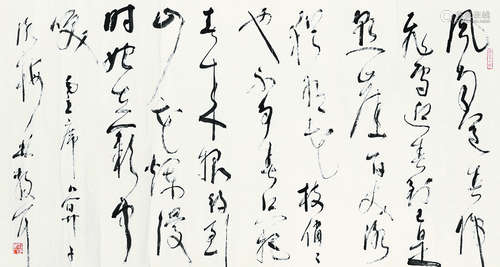 風雨送春歸
飛雪迎春到已是
懸崖百丈冰
猶有花枝俏〻
也不爭春只把
春來報待到
山花爛漫
時她在叢中
笑 毛主席卜算子
詠梅 林散耳